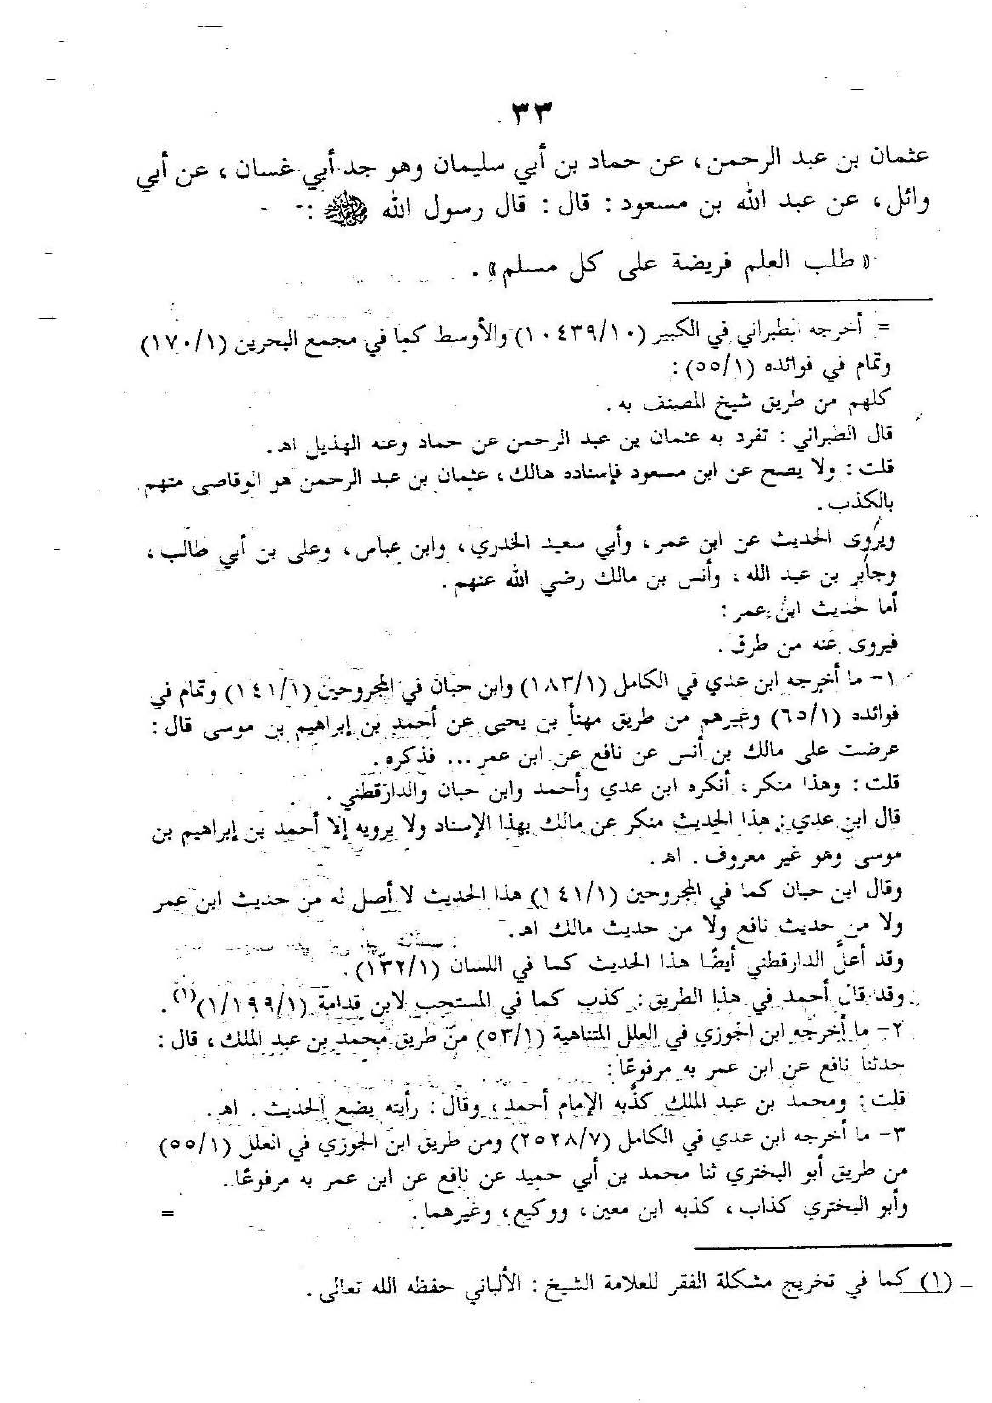 ٣٣
عثمان بن عبد الرحمن، عن حماد بن أبي سليمان وهو جد أبي غسان، عن أبي
وائل، عن عبد الله بن مسعود: قال: قال رسول الله ﷺ :-
« طلب العلم فريضة على كل مسلم» .
= أخرجه الطبراني في الكبير (١٠٤٣٩/١٠) والأوسط كما في مجمع البحرين (١٧٠/١)
وتمام في فوائده (٥٥/١):
كلهم من طريق شيخ المصنف به .
قال الطبراني: تفرد به عثمان بن عبد الرحمن عن حماد وعنه الهذيل اهـ.
قلت: ولا يصح عن ابن مسعود فإسناده هالك، عثمان بن عبد الرحمن هو الوقاصى متهم
بالكذب.
ويُروى الحديث عن ابن عمر، وأبي سعيد الخدري، وابن عباس، وعلى بن أبي طالب،
وجابر بن عبد الله، وأنس بن مالك رضي الله عنهم.
أما حديث ابن عمر:
فيروى عنه من طرق.
١- ما أخرجه ابن عدي في الكامل (١٨٣/١) وابن حبان في المجروحين (١٤١/١) وتمام في
فوائده (٦٥/١) وغيرهم من طريق مهنأ بن يحيى عن أحمد بن إبراهيم بن موسى قال:
عرضت على مالك بن أنس عن نافع عن ابن عمر ... فذكره.
قلت: وهذا منكر، أنكره ابن عدي وأحمد وابن حبان والدارقطني.
قال ابن عدي: هذا الحديث منكر عن مالك بهذا الإسناد ولا يرويه إلا أحمد بن إبراهيم بن
موسى وهو غير معروف. اهـ.
وقال ابن حبان كما في المجروحين (١٤١/١) هذا الحديث لا أصل له من حديث ابن عمر
ولا من حديث نافع ولا من حديث مالك اهـ.
وقد أعلَّ الدارقطني أيضًا هذا الحديث كما في اللسان (١٣٢/١).
وقد قال أحمد في هذا الطريق: كذب كما في المستحب لابن قدامة (١/١٩٩/١)(١).
٢- ما أخرجه ابن الجوزي في العلل المتناهية (٥٣/١) من طريق محمد بن عبد الملك، قال:
حدثنا نافع عن ابن عمر به مرفوعًا:
قلت: ومحمد بن عبد الملك كذَّبه الإمام أحمد، وقال: رأيته يضع الحديث. اهـ.
٣- ما أخرجه ابن عدي في الكامل (٢٥٢٨/٧) ومن طريق ابن الجوزي في العلل (٥٥/١)
من طريق أبو البختري ثنا محمد بن أبي حميد عن نافع عن ابن عمر به مرفوعًا.
وأبو البختري كذاب، كذبه ابن معين، ووكيع، وغيرهما. =
(١) كما في تخريج مشكلة الفقر للعلامة الشيخ: الألباني حفظه الله تعالى.